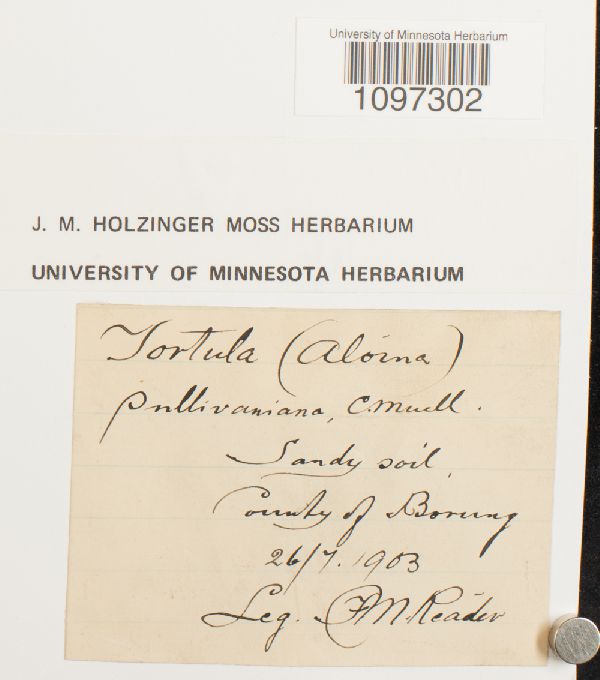 University of Minnesota Herbarium
1097302
J. M. HOLZINGER MOSS HERBARIUM
UNIVERSITY OF MINNESOTA HERBARIUM
Tortula (Aloina)
Sullivaniana, C. Muell.
Sandy soil,
County of Borung
26/7.1903
Leg. F M. Reader